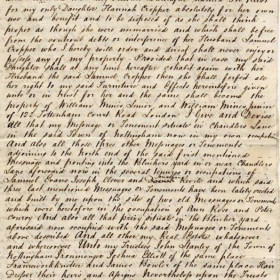 for my only Daughter Hannah Cropper absolutely for her own
use and benefit and to be disposed of as she shall think
proper as though she were unmarried and which shall be free
from the control debts or interference of her Husband Samuel
Cropper who I hereby will order and direct shall never enjoy or
possess any of my property Provided that in case my said
Daughter shall at any time hereafter cohabit again with her
Husband the said Samuel Cropper then she shall forfeit all
her right to my said Furniture and Effects hereinbefore given
unto her in trust for her and the same shall become the
property of William Minic Senior, and William Minic Junior
of 122 Tottenham Court Road London. I Give and Devise
All that my Messuage or Tenement situate in Chandlers Lane
in the said Town of Nottingham now in my own occupation
And also all those three other Messuages or Tenements
adjoining to the North end of the said first mentioned
Messuage and fronting into the Butcher yard in or near Chandlers
Lane aforesaid now in the several tenures or occupations of
Samuel Evans Joseph and which said
three last mentioned Messuages or Tenements have been lately erected
and built by me upon the site of two old Messuages or Tenements
which were heretofore in the occupations of Ann Rose and Peter
Conroy And also all that privy situate in the Butcher yard
aforesaid now occupied with the said Messuages or Tenements
above devised And all other my Real Estate whatsoever
and wheresoever Unto my Trustees John Stanley of the Town of
Nottingham Ironmonger Joshua Elliott of the same place
and James of the same place
Dresser their heirs and assigns Nevertheless upon the Trusts